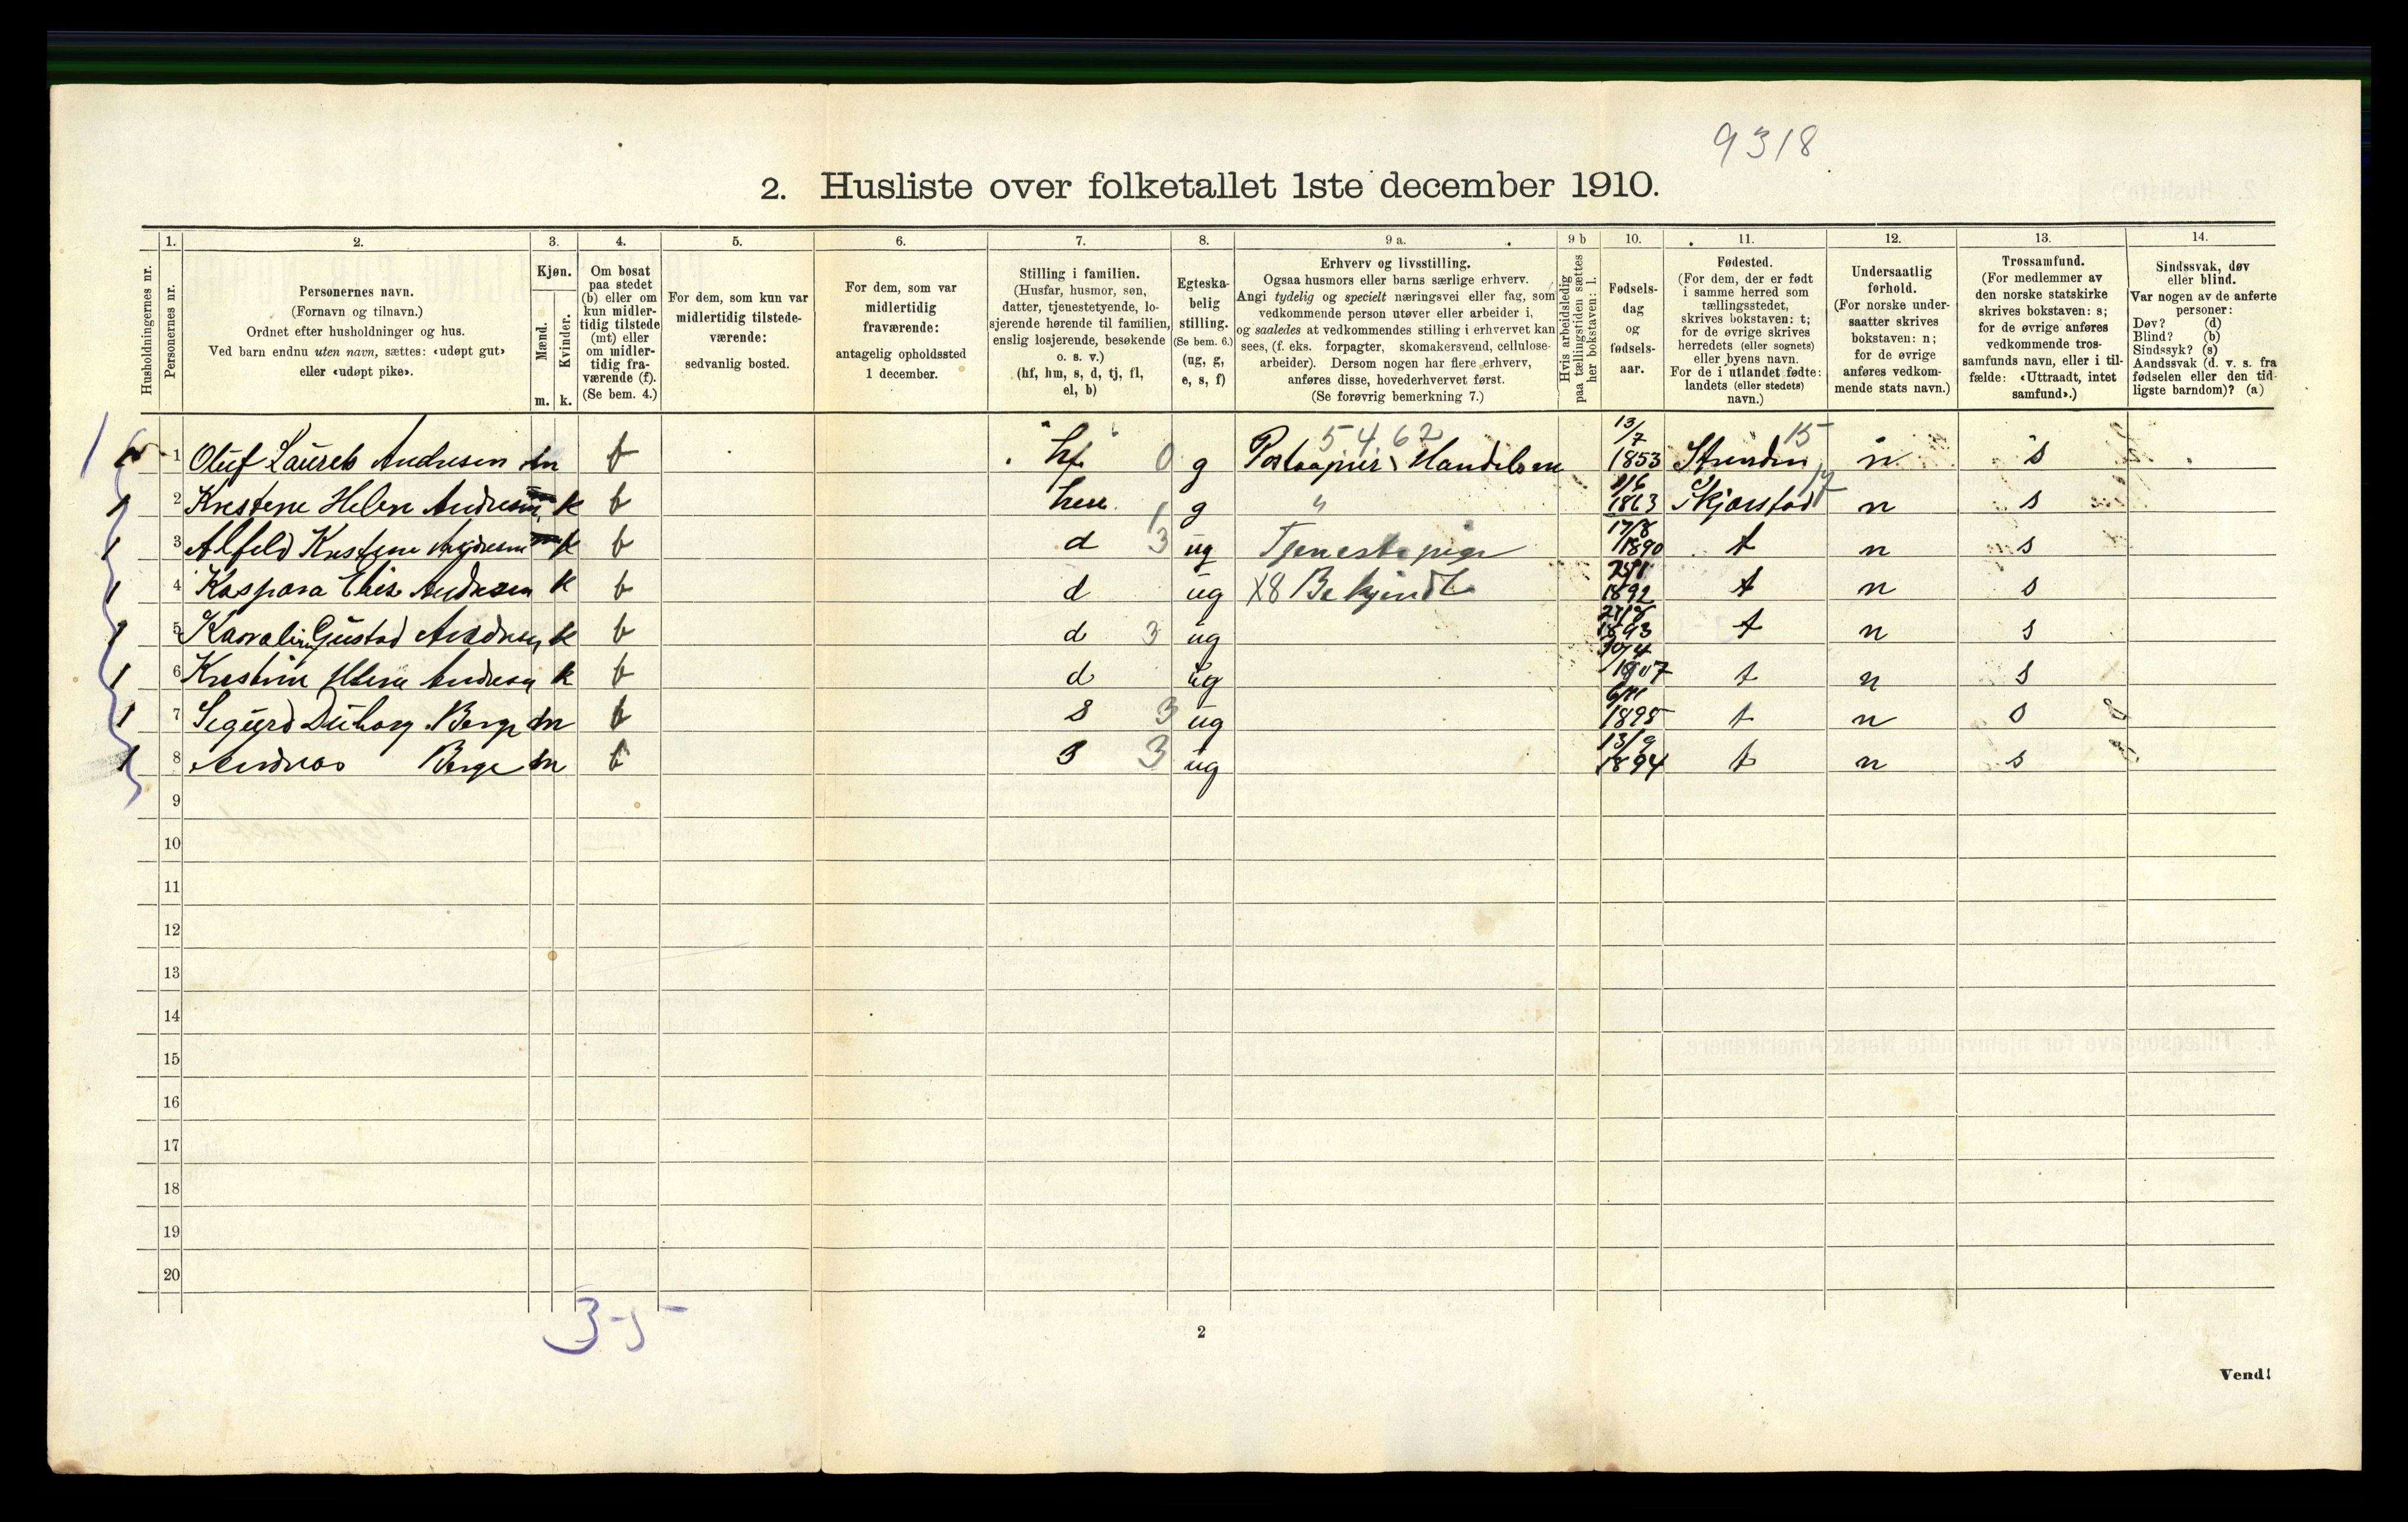 9318
2. Husliste over folketallet 1ste december 1910.
Husholdningernes nr.
1. Personernes nr.
2. Personernes navn.
(Fornavn og tilnavn.)
Ordnet efter husholdninger og hus.
Ved barn endnu uten navn, sættes: «udøpt gut»
eller «udøpt pike».
3. Kjøn.
Mænd. Kvinder.
m. k.
4. Om bosat
paa stedet
(b) eller om
kun midler-
tidig tilstede
(mt) eller
om midler-
tidig fra-
værende (f).
(Se bem. 4.)
5. For dem, som kun var
midlertidig tilstede-
værende:
sedvanlig bosted.
6. For dem, som var
midlertidig
fraværende:
antagelig opholdssted
1 december.
7. Stilling i familien.
(Husfar, husmor, søn,
datter, tjenestetyende, lo-
sjerende hørende til familien,
enslig losjerende, besøkende
o. s. v.)
(hf, hm, s, d, tj, fl,
el, b)
8. Egteska-
belig
stilling.
(Se bem. 6.)
(ug, g,
e, s, f)
9 a. Erhverv og livsstilling.
Ogsaa husmors eller barns særlige erhverv.
Angi tydelig og specielt næringsvei eller fag, som
vedkommende person utøver eller arbeider i,
og saaledes at vedkommendes stilling i erhvervet kan
sees, (f. eks. forpagter, skomakersvend, cellulose-
arbeider). Dersom nogen har flere erhverv,
anføres disse, hovederhvervet først.
(Se forøvrig bemerkning 7.)
9 b Hvis arbeidsledig
paa tællingstiden sættes
her bokstaven: l.
10. Fødsels-
dag
og
fødsels-
aar.
11. Fødested.
(For dem, der er født
i samme herred som
tællingsstedet,
skrives bokstaven: t;
for de øvrige skrives
herredets (eller sognets)
eller byens navn.
For de i utlandet fødte:
landets (eller stedets)
navn.)
12. Undersaatlig
forhold.
(For norske under-
saatter skrives
bokstaven: n;
for de øvrige
anføres vedkom-
mende stats navn.)
13. Trossamfund.
(For medlemmer av
den norske statskirke
skrives bokstaven: s;
for de øvrige anføres
vedkommende tros-
samfunds navn, eller i til-
fælde: «Uttraadt, intet
samfund».)
14. Sindssvak, døv
eller blind.
Var nogen av de anførte
personer:
Døv? (d)
Blind? (b)
Sindssyk? (s)
Aandssvak (d. v. s. fra
fødselen eller den tid-
ligste barndom)? (a)
1 Oluf Laurets Andresen m b hf 0 g 5462 13/7 1853 15 n s
1 2 Krestene Helene Andresen k b hm 1 g " 1863 Skjærstad 17 n s
1 3 Alfeld Krestine Andresen k b d 3 ug Tjenestepige 17/8 1890 t n s
1 4 Kaspara Andresen k b d ug X8 1892 t n s
1 5 Gustad Andresen k b d 3 ug 1893 t n s
1 6 Krestine Andresen k b d ug 1907 t n s
1 7 Sigurd Berge m b s 3 ug 6/11 1895 t n s
1 8 Andreas Berge m b s 3 ug 13/9 1894 t n s
9
10
11
12
13
14
15
16
17
18
19
20
3-5
2
Vend!